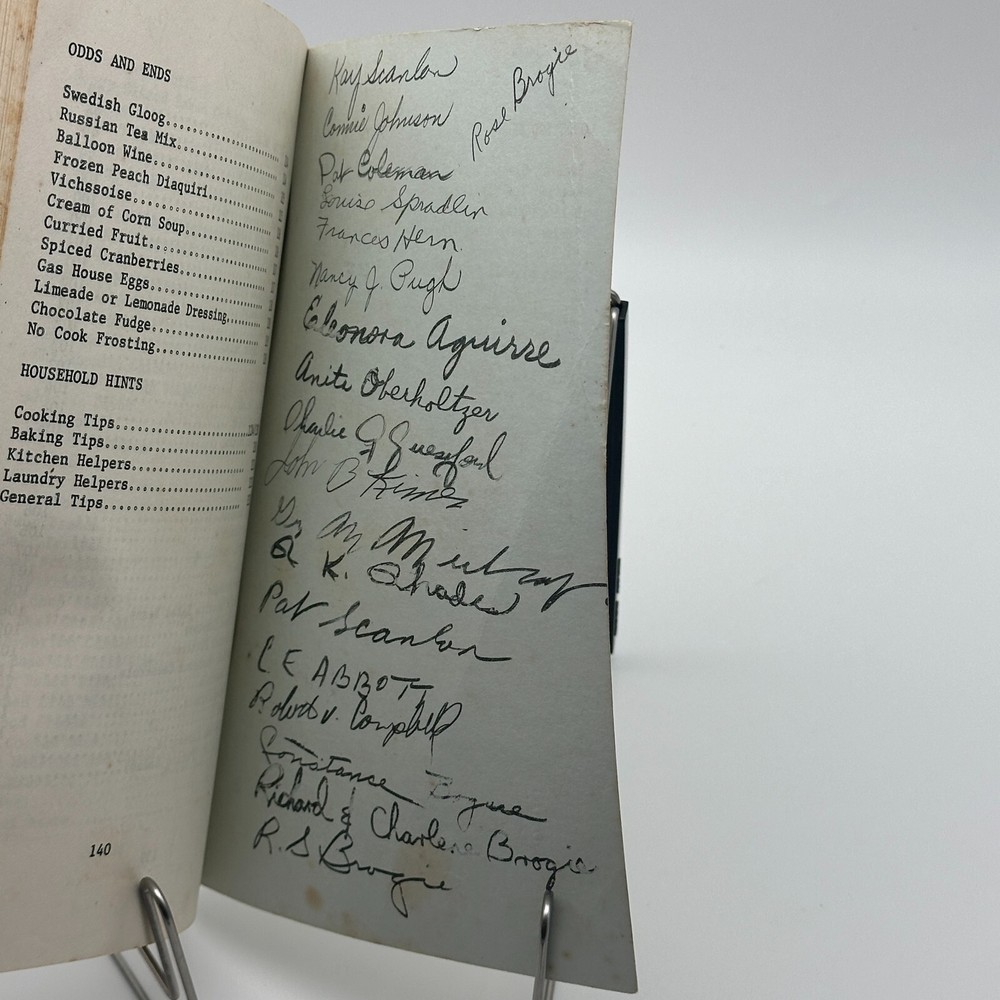 ODDS AND ENDS
Swedish Gloog
Russian Tea Mix
Balloon Wine
Frozen Peach Diaquiri
Vichssoise
Cream of Corn Soup
Curried Fruit
Spiced Cranberries
Gas House Eggs
Limeade or Lemonade Dressing
Chocolate Fudge
No Cook Frosting
HOUSEHOLD HINTS
Cooking Tips
Baking Tips
Kitchen Helpers
Laundry Helpers
General Tips
140
Kay Scanlon
Rose Brogie
Connie Johnson
Pat Coleman
Louise Spradlin
Frances Hern.
Nancy J. Pugh
Eleonora Aguirre
Anita Oberholtzer
Charlie G
John B Kimes
K. Rhodes
Pat Scanlon
C E ABBOTT
Robert V. Campbell
Constance Bogue
Richard & Charlene Brogie
R. S Brogie